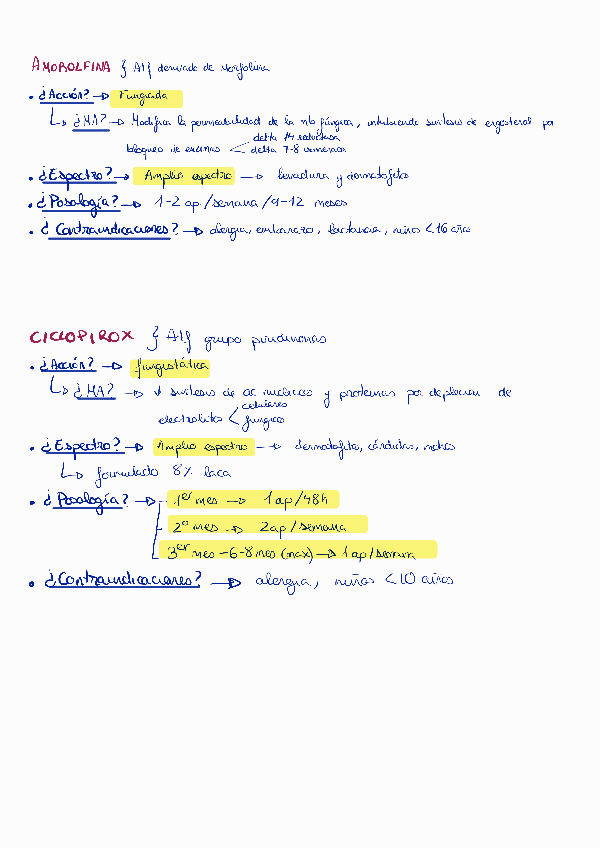 AMOROLFINA } Af derivado de Morfolina
• ¿Acción? → Fungicida
↳ ¿MA? → Modifica la permeabilidad de la mb fúngica, inhibiendo síntesis de ergosterol por
bloqueo de enzimas < delta 14 reductasa
delta 7-8 isomerasa
• ¿Espectro? → Amplio espectro → levadura y dermatofitos
• ¿Posología? → 1-2 ap/semana/9-12 meses
• ¿Contraindicaciones? → alergia, embarazo, lactancia, niños <16 años
CICLOPIROX } Af grupo piridinonas
• ¿Acción? → fungistática
↳ ¿MA? → ↓ síntesis de ac nucleicos y proteínas por depleción de
electrolitos < celulares
fúngicos
• ¿Espectro? → Amplio espectro → dermatofitos, cándidas, mohos
↳ formulado 8% laca
• ¿Posología? → 1er mes → 1 ap/48h
2º mes → 2ap/semana
3er mes - 6-8 mes (max) → 1 ap/semana
• ¿Contraindicaciones? → alergia, niños <10 años